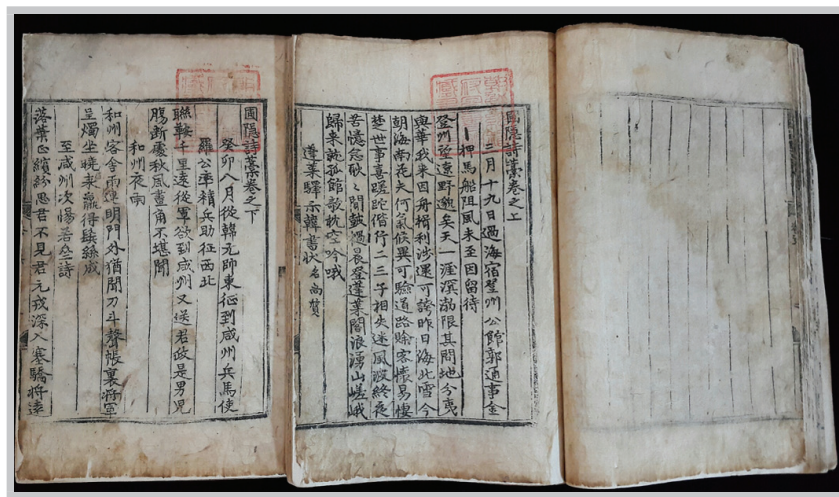 圃隱詩藁卷之上
三月十九日過海宿登州公館郭通事金
押馬船阻風未至因留待
登州望遠野邈矣天一涯溟渤限其間地分夷
與華我來因舟楫利涉還可誇昨日海北雪今
朝海南花夫何氣候異可驗道路賖客懷易悽
楚世事喜蹉跎偕行二三子相失迷風波終夜
苦憶念耿〻聞鼓撾晨登蓬萊閣浪湧山嵯峨
歸來就孤館欹枕空吟哦
蓬萊驛示韓書狀名尙質
圃隱詩藁卷之下
癸卯八月從韓元帥東征到咸州兵馬使
羅公率精兵助征西北
聯鞍千里遠從軍欲到咸州又送君政是男兒
腸斷處秋風畫角不堪聞
和州夜雨
和州客舍雨連明門外猶聞刀斗聲帳裏將軍
呈燭坐曉來羸得鬢絲成
至咸州次惕若齋詩
落葉正繽紛思君不見君元戎深入塞驕將遠